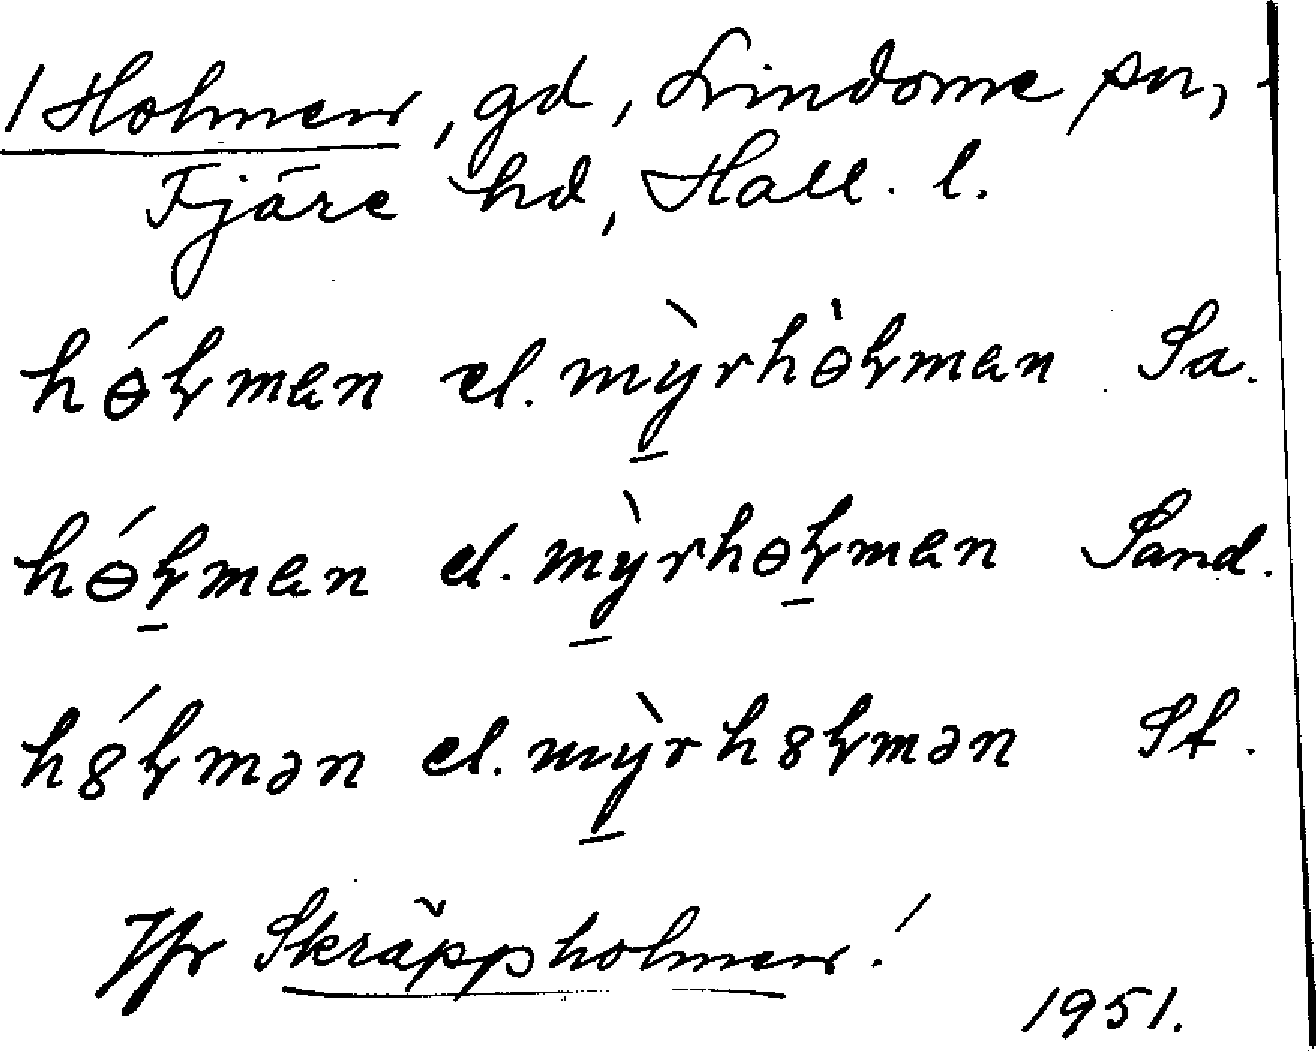 / Holmen, gd, Lindome sn,
Fjäre hd, Hall. l.
hɵ́ꝉman el. mỳ̠rhɵ̀ꝉman Sa.
hɵ́ꝉ̠man el. mỳ̠rhɵꝉ̠man Sand.
h8́ꝉmən el. mỳ̠rh8ꝉmən St.
Jfr Skräppholmen!
1951.